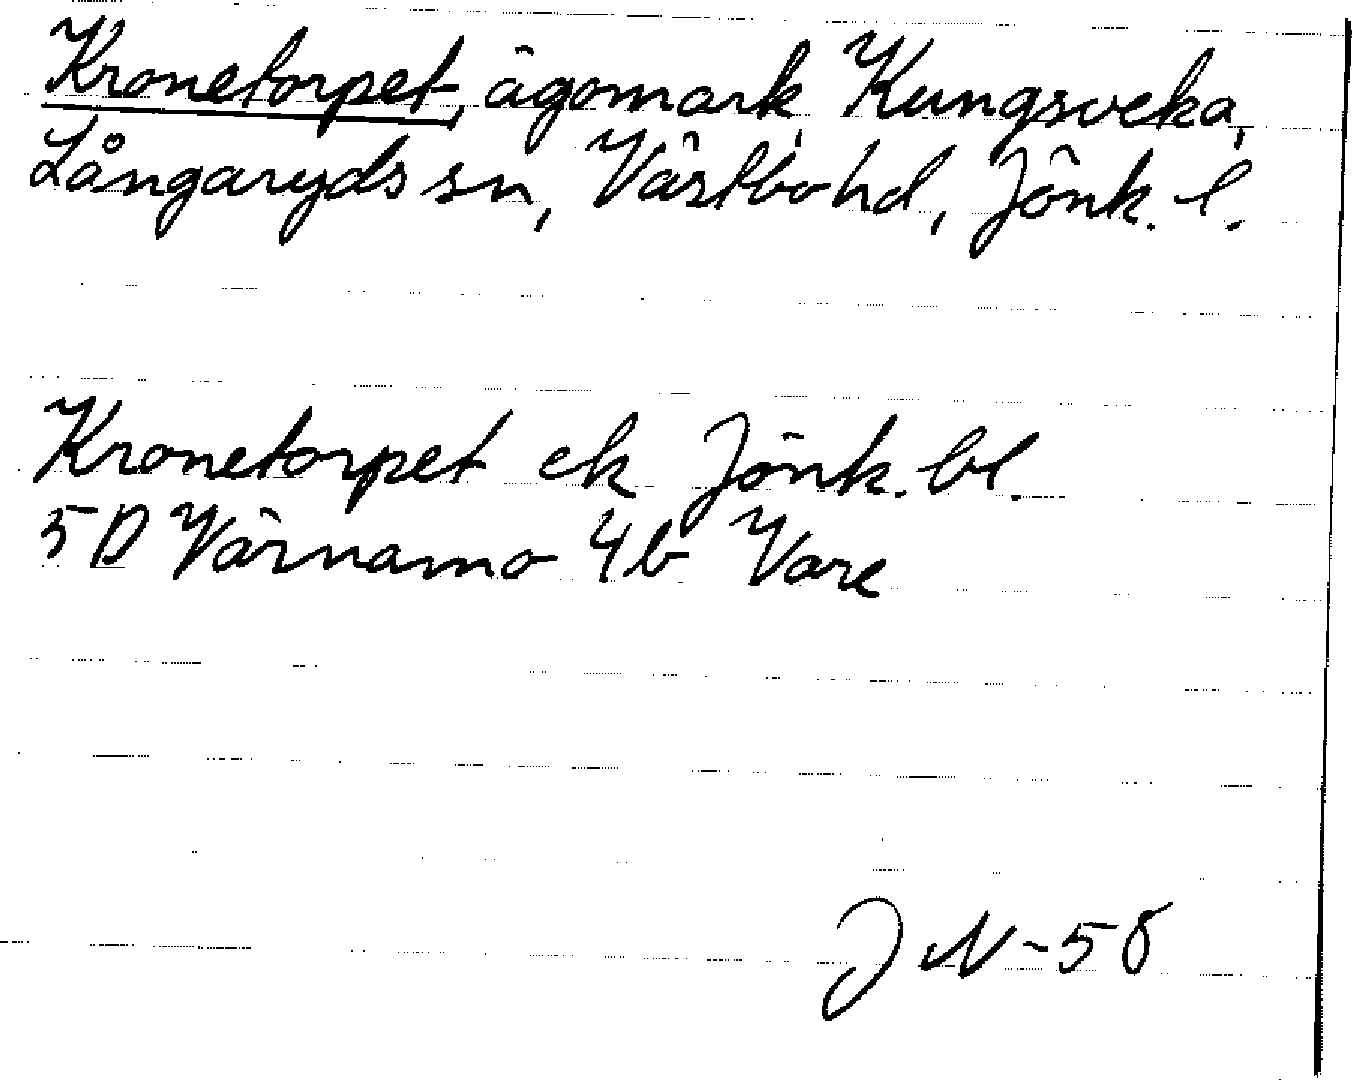 Kronetorpet, ägomark, Kungsveka,
Långaryds sn, Västbo hd, Jönk. l.
Kronetorpet ek Jönk. bl.
5D Värnamo 4b Vare
JN-58